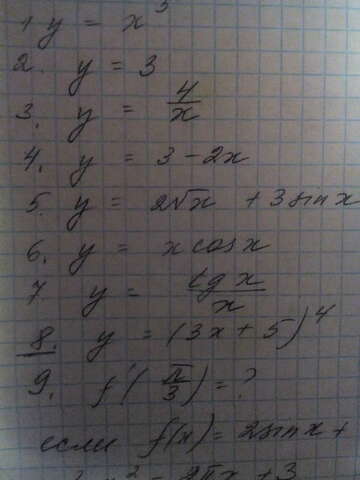 1 y = x⁵
2. y = 3
3. y = 4/x
4. y = 3 - 2x
5. y = 2√x + 3 sin x
6. y = x cos x
7. y = tg x / x
8. y = (3x + 5)⁴
9. f'(π/3) = ?
если f(x) = 2 sin x +
x² - 2πx + 3